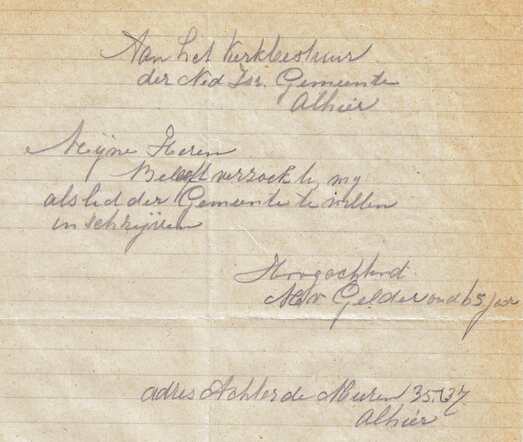 Aan het Kerkbestuur
der Ned Isr. Gemeente
Alhier
Mijne Heren
Beleeft verzoek ik, mij
als lid der Gemeente te willen
inschrijven
Hoogachtend
v Gelder oud 65 jaar
adres Achter de Muren
Alhier